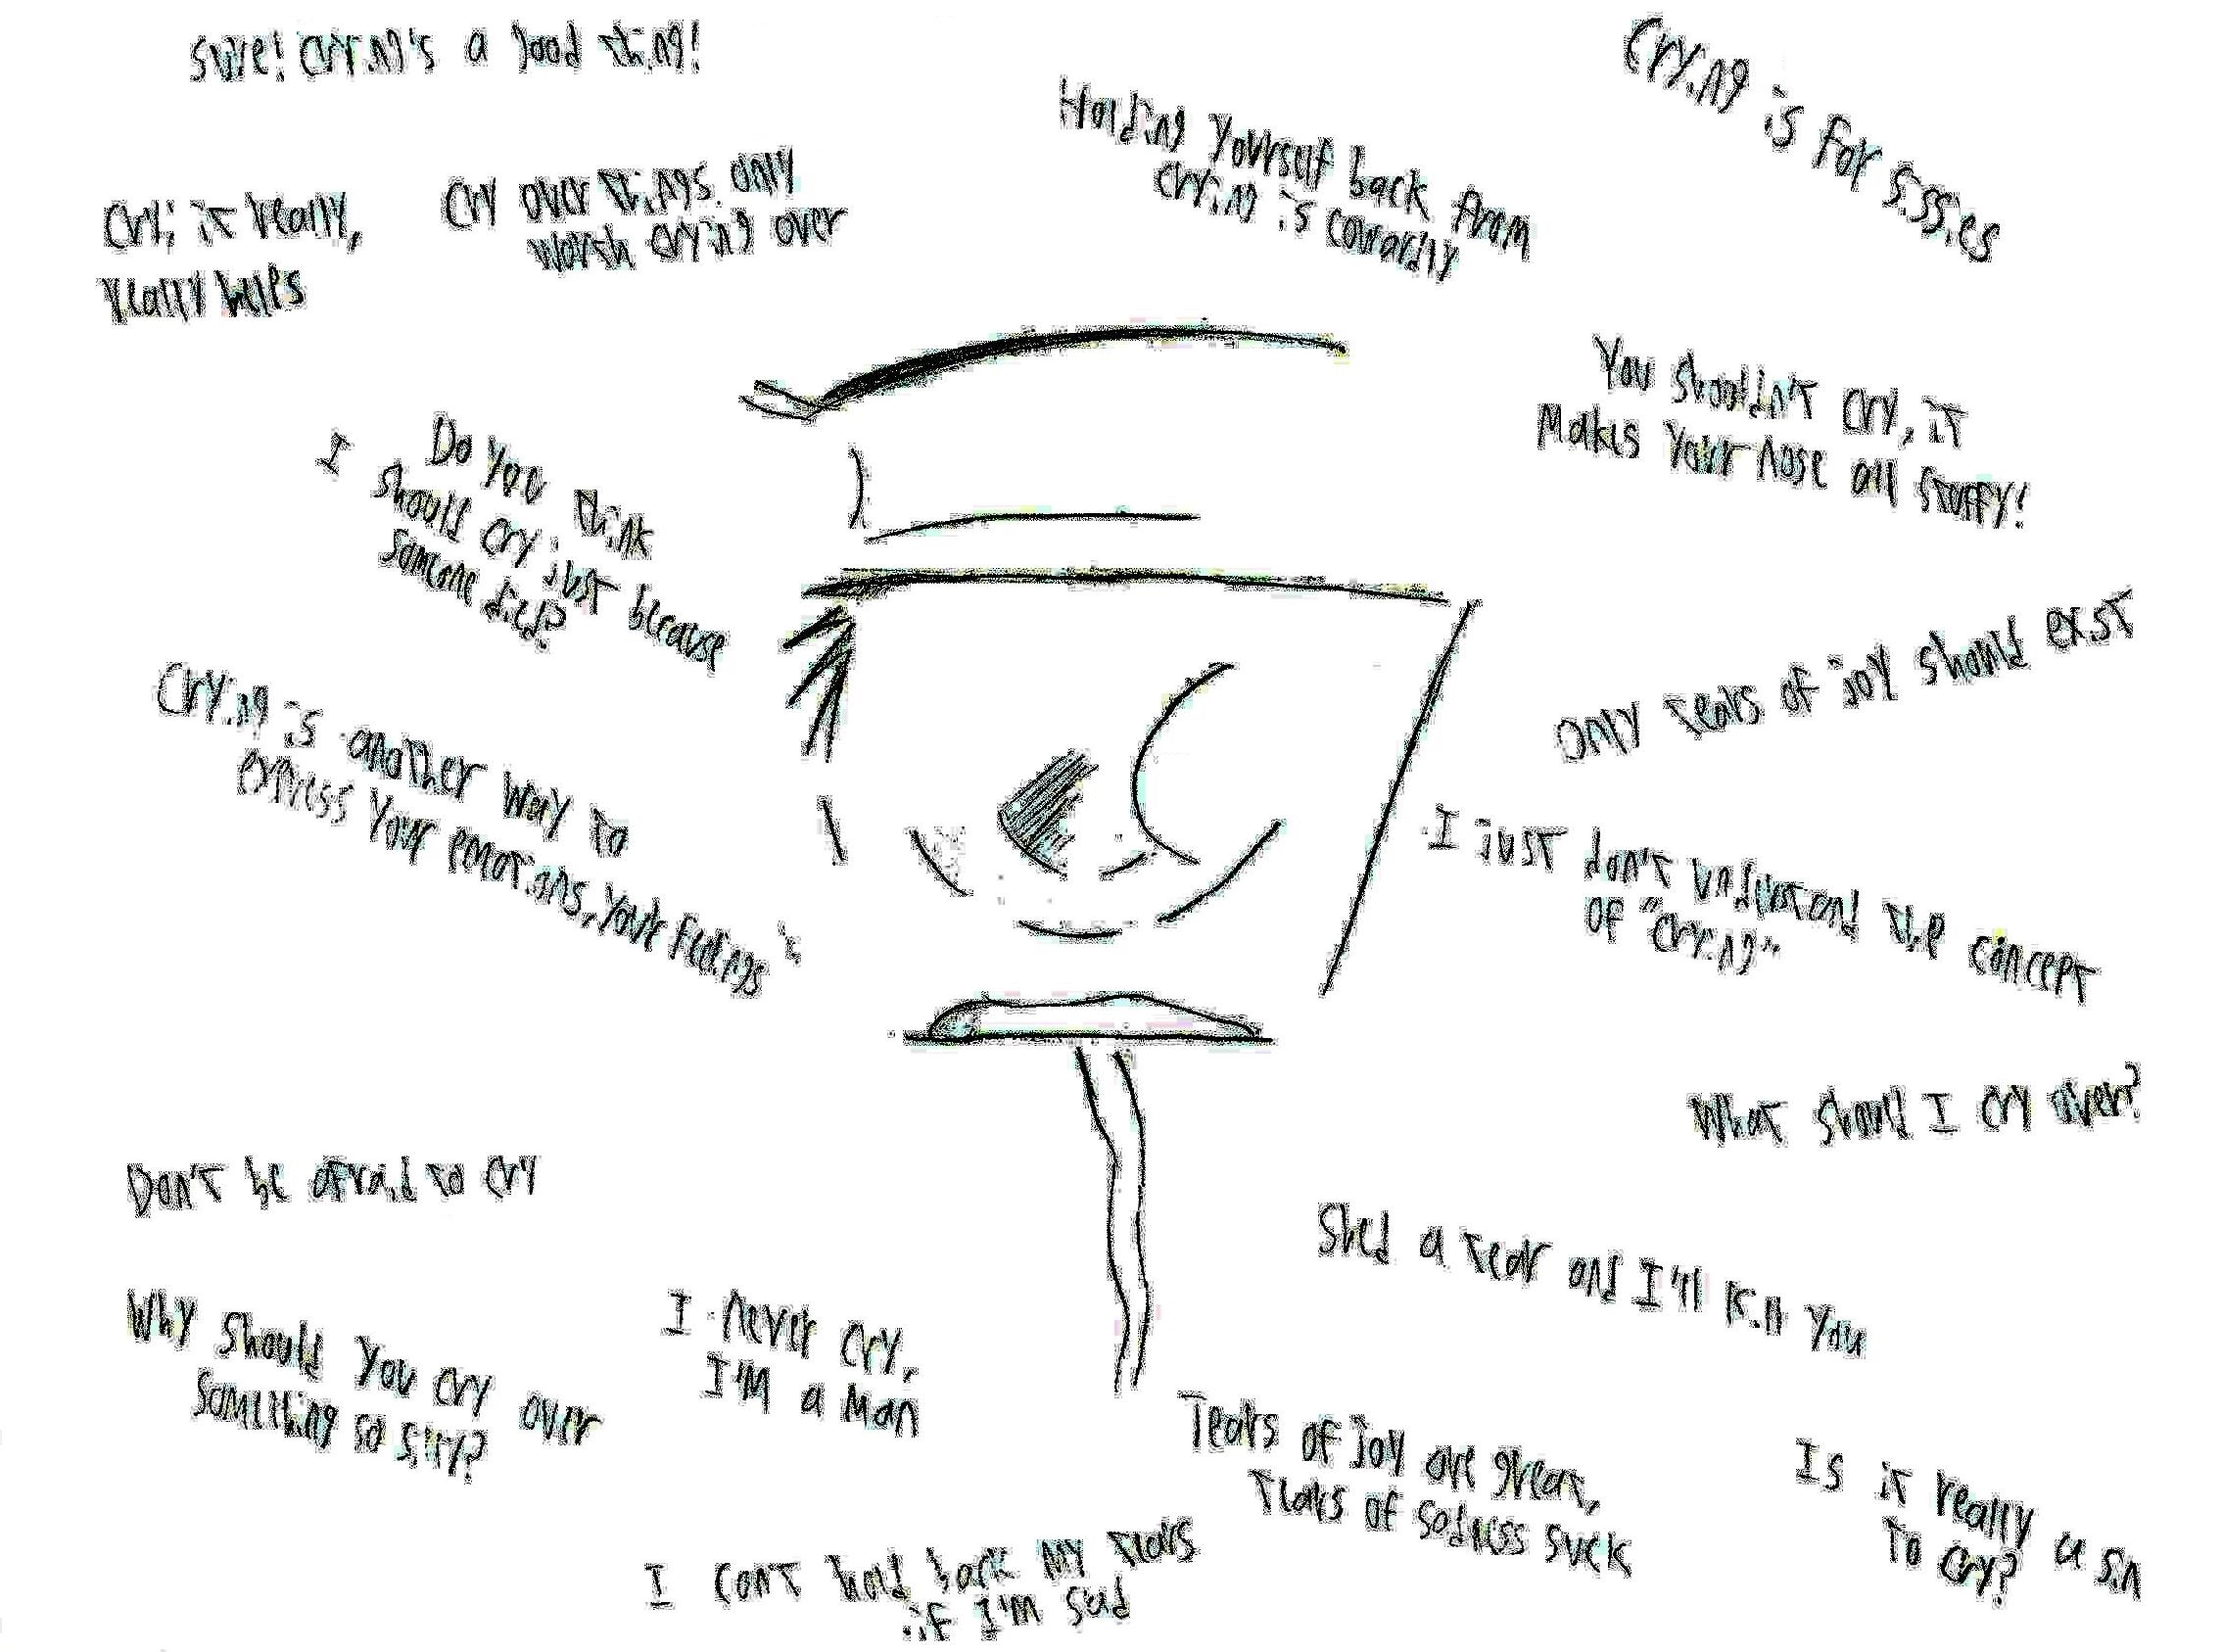 Sure! Crying's a good thing!
Crying is for sissies
Holding yourself back from
crying is cowardly
Cry over things only
worth crying over
Cry; it really,
really helps
You shouldn't cry, it
makes your nose all stuffy!
Do you think
I should cry just because
someone died?
Only tears of joy should exist
Crying is another way to
express your emotions, your feelings
I just don't understand the concept
of "crying"
What should I cry over?
Don't be afraid to cry
Shed a tear and I'll kill you
Why should you cry over
something so silly?
I never cry,
I'm a man
Tears of joy are great,
tears of sadness suck
Is it really a sin
to cry?
I can't hold back my tears
if I'm sad